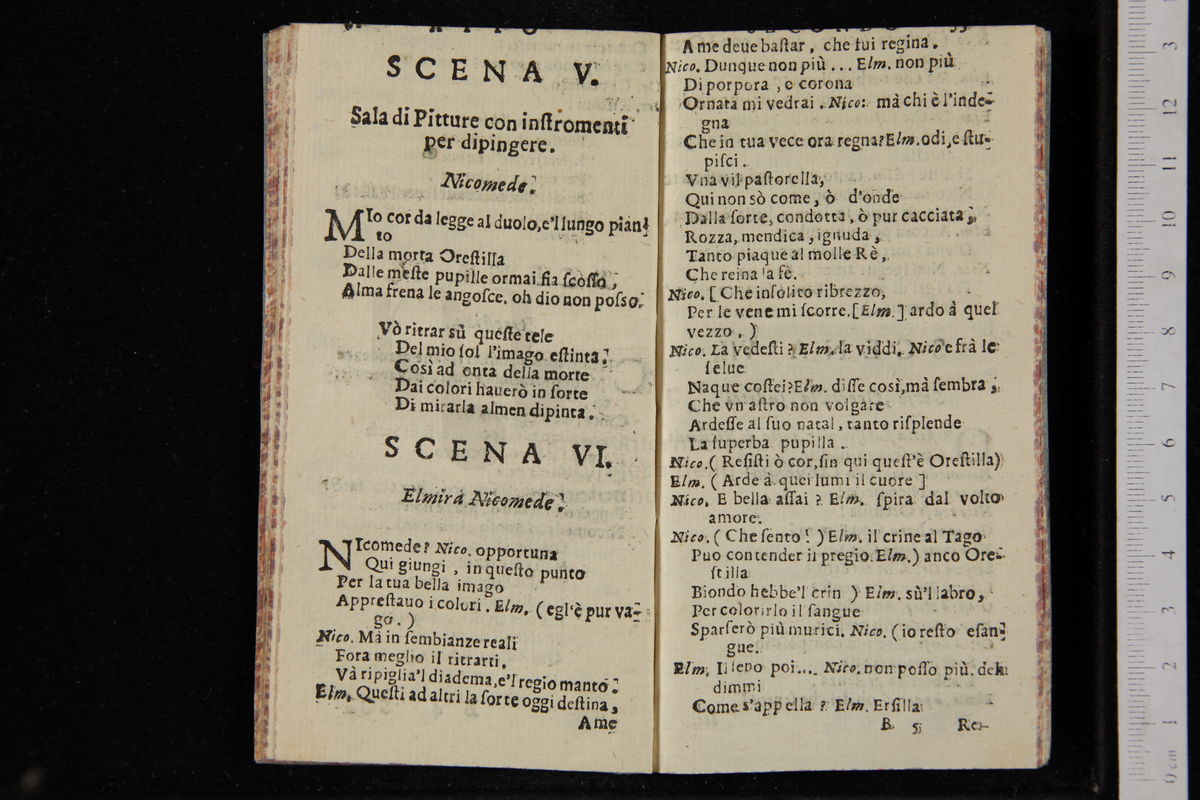 ATTO
SCENA V.
Sala di Pitture con inſtromenti
per dipingere.
Nicomede.
MIo cor da legge al duolo,e'l lungo pian-
to
Della morta Oreſtilla
Dalle meſte pupille ormai ſia ſcoſſo,
Alma frena le angoſce. oh dio non poſso.
Vò ritrar sù queſte tele
Del mio ſol l'imago eſtinta.
Così ad onta della morte
Dai colori hauerò in ſorte
Di mirarla almen dipinta.
SCENA VI.
Elmira Nicomede.
NIcomede? Nico. opportuna
Qui giungi , in queſto punto
Per la tua bella imago
Appreſtauo i colori. Elm. (egl'è pur va-
go.)
Nico. Mà in ſembianze reali
Fora meglio il ritrarti.
Và ripiglia'l diadema,e'l regio manto.
Elm. Queſti ad altri la ſorte oggi deſtina,
A me
SECONDO 33
A me deue baſtar, che fui regina.
Nico. Dunque non più ... Elm. non più
Di porpora , e corona
Ornata mi vedrai. Nico: mà chi è l'inde-
gna
Che in tua vece ora regna?Elm.odi,e ſtu-
piſci.
Vna vil paſtorella,
Qui non sò come, ò d'onde
Dalla ſorte, condotta, ò pur cacciata;
Rozza, mendica, ignuda,
Tanto piaque al molle Rè,
Che reina la fè.
Nico. [ Che inſolito ribrezzo,
Per le vene mi ſcorre.[Elm.] ardo à quel
vezzo , )
Nico. La vedeſti ? Elm. la viddi. Nico e frà le
ſelue
Naque coſtei?Elm. diſſe così,mà ſembra;
Che vn aſtro non volgare
Ardeſſe al ſuo natal, tanto riſplende
La ſuperba pupilla.
Nico.( Reſiſti ò cor,ſin qui queſt'è Oreſtilla)
Elm. ( Arde à quei lumi il cuore ]
Nico. E bella aſſai ? Elm. ſpira dal volto
amore.
Nico. ( Che ſento! ) Elm. il crine al Tago
Puo contender il pregio.Elm.) anco Ore-
ſtilla
Biondo hebbe'l crin ) Elm. sù'l labro,
Per colorirlo il ſangue
Sparſerò più murici. Nico. (io reſto eſan-
gue.
Elm. Il ſeno poi.... Nico. non poſſo più. deh
dimmi
Come s'appella ? Elm. Erſilla
B 5 Re-